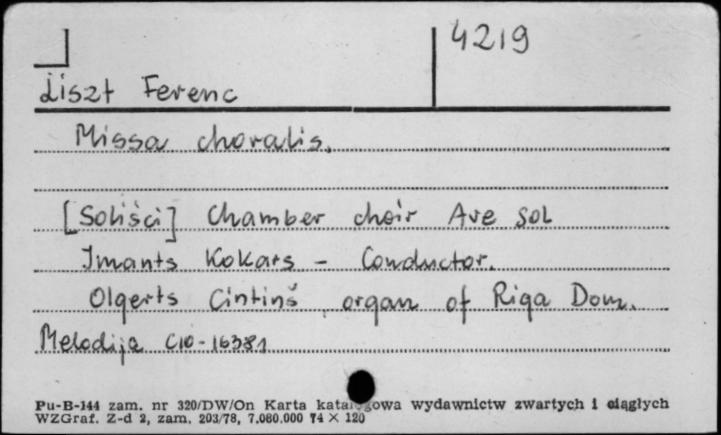 4219
Liszt Ferenc
Missa choralis.
[Soliści] Chamber choir Ave sol
Imants Kokars - Conductor.
Olgerts Cintinš organ of Riga Dom.
Melodija C10-16381
Pu-B-144 zam. nr 320/DW/On Karta katalogowa wydawnictw zwartych i ciągłych
WZGraf. Z-d 2, zam. 203/78, 7.080.000 74 × 120